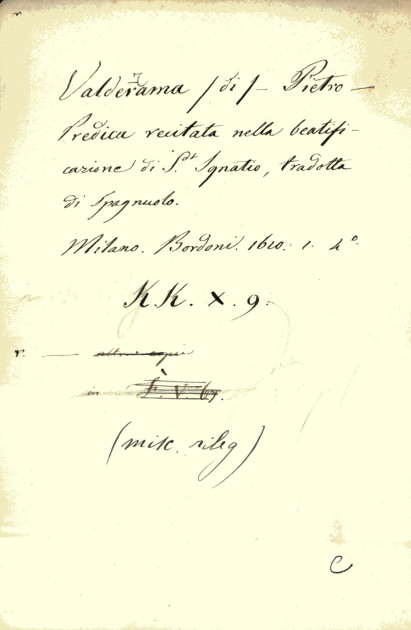 Valderama / di / - Pietro -
Predica recitata nella beatifi-
cazione di S.to Ignatio, tradotta
di Spagnuolo.
Milano. Bordoni. 1610. 1. 4º
K K. X. 9.
in F. V. 67.
(misc. rileg)
C